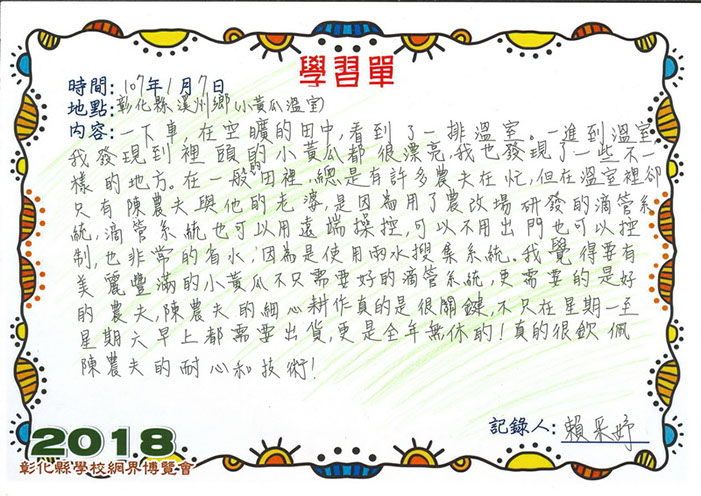 學習單
時間:107年1月7日
地點:彰化縣溪州鄉(小黃瓜溫室)
內容:一下車,在空曠的田中,看到了一排溫室。一進到溫室
我發現到裡頭的小黃瓜都很漂亮,我也發現了一些不一
樣的地方。在一般的田裡,總是有許多農夫在忙,但在溫室裡卻
只有陳農夫與他的老婆,是因為用了農改場研發的滴管系
統,滴管系統也可以用遠端操控,可以不用出門也可以控
制,也非常的省水,因為是使用雨水搜集系統。我覺得要有
美麗豐滿的小黃瓜不只需要好的滴管系統,更需要的是好
的農夫,陳農夫的細心耕作真的是很關鍵,不只在星期一至
星期六早上都需要出貨,更是全年無休的!真的很欽佩
陳農夫的耐心和技術!
記錄人:賴采妤
2018
彰化縣學校網界博覽會